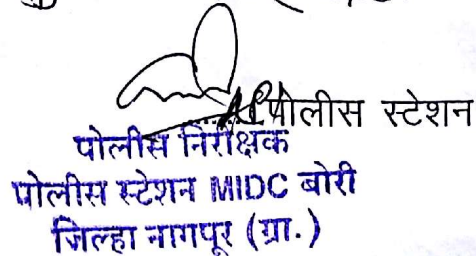 पोलीस स्टेशन
पोलीस निरीक्षक
पोलीस स्टेशन MIDC बोरी
जिल्हा नागपूर (ग्रा.)